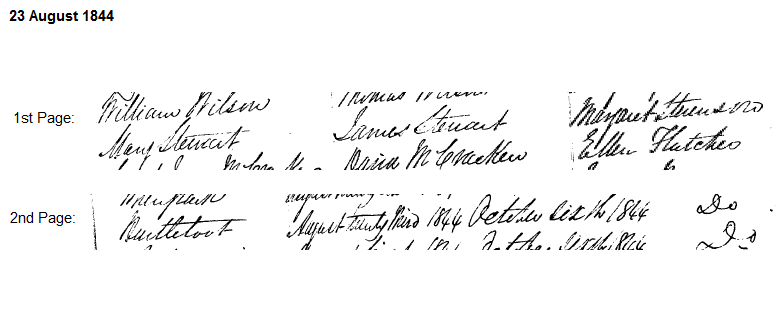 23 August 1844
1st Page:
William Wilson Thomas Wilson Margaret Stevenson
Mary Stewart James Stewart Ellen Flutcher
David McCracken
2nd Page:
August twenty third 1844 October sixth 1844 Do
October sixth 1844 Do